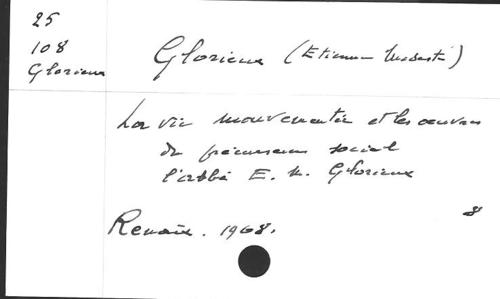 25
108
Glorieux
Glorieux (Etienne Modeste)
La vie mouvementée et les œuvres
du précurseur social
l'abbé E. M. Glorieux
8
Renaix. 1968.